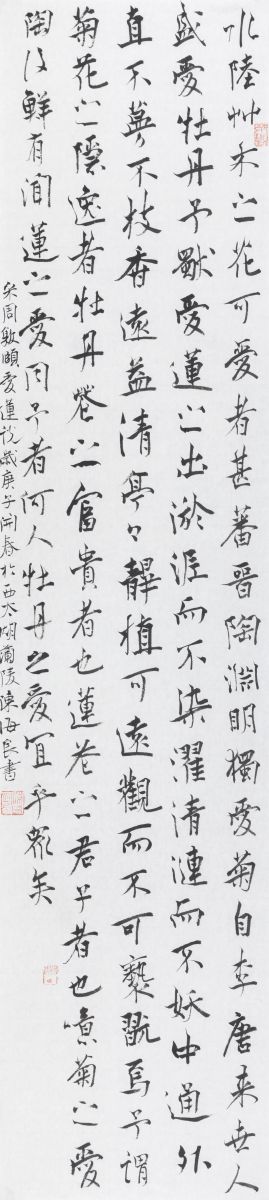 水陸艸木之花可愛者甚蕃晉陶淵明獨愛菊自李唐来世人
盛愛牡丹予獨愛蓮之出淤泥而不染濯清漣而不妖中通外
直不蔓不枝香遠益清亭々靜植可遠觀而不可褻翫焉予謂
菊花之隱逸者牡丹花之富貴者也蓮花之君子者也噫菊之愛
陶後鮮有聞蓮之愛同予者何人牡丹之愛宜乎眾矣
宋周敦頤愛蓮說歲庚子開春於西太湖蘭陵陳海良書